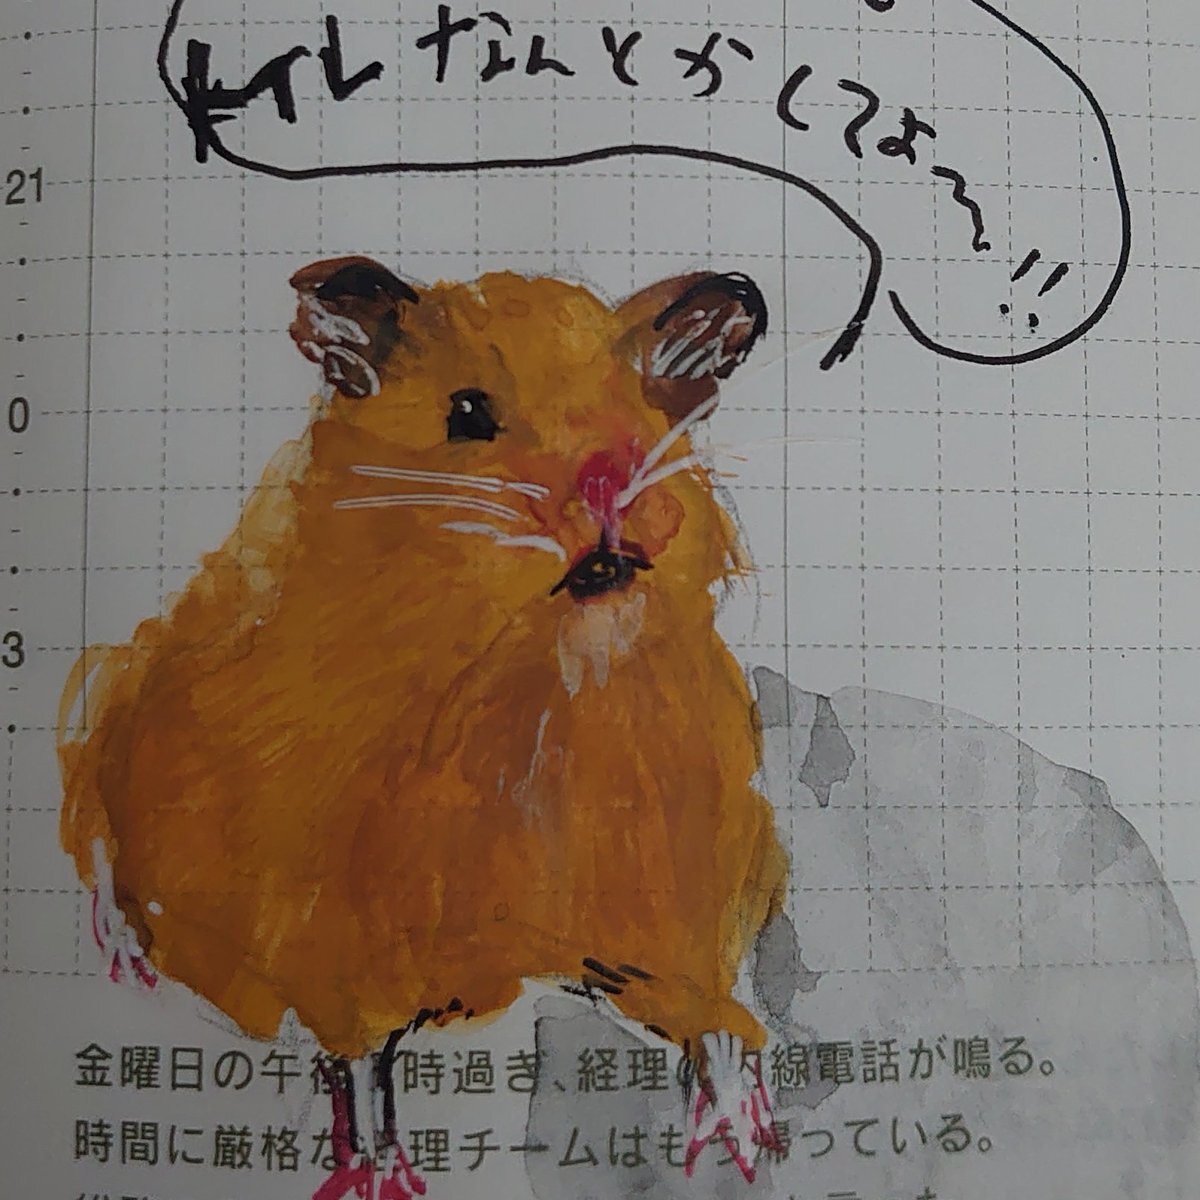 トイレなんとかしてよ〜!!
21
0
3
金曜日の午後 時過ぎ、経理の内線電話が鳴る。
時間に厳格な経理チームはもう帰っている。